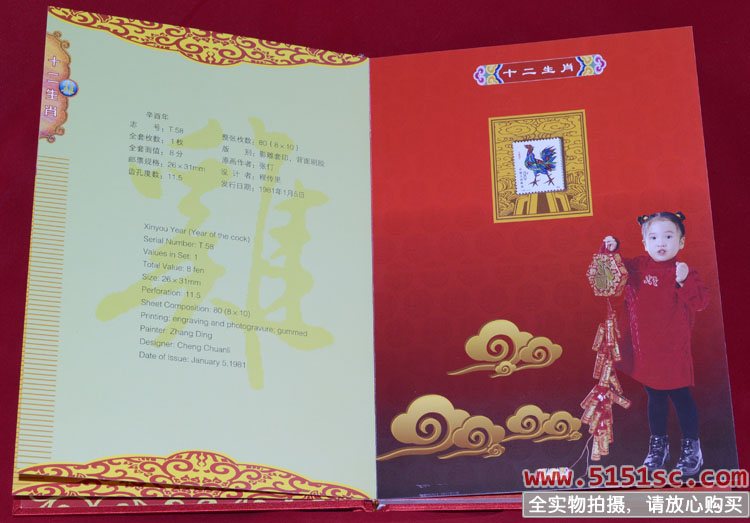 十二生肖
辛酉年
志　号：T.58
全套枚数：1 枚
全套面值：8 分
邮票规格：26×31mm
齿孔度数：11.5
整张枚数：80 (8×10)
版　别：影雕套印，背面刷胶
原画作者：张仃
设 计 者：程传里
发行日期：1981年1月5日
雞
Xinyou Year (Year of the cock)
Serial Number: T.58
Values in Set: 1
Total Value: 8 fen
Size: 26×31mm
Perforation: 11.5
Sheet Composition: 80 (8×10)
Printing: engraving and photogravure, gummed
Painter: Zhang Ding
Designer: Cheng Chuanli
Date of Issue: January 5,1981
十二生肖
www.5151sc.com
全实物拍摄，请放心购买